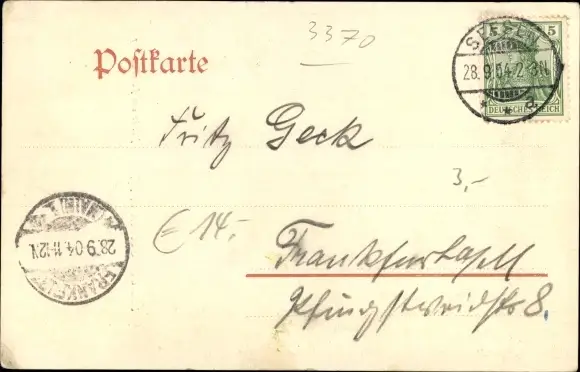 3370
5
Postkarte
SPEYER
28.9.04.2-3N
a
DEUTSCHES REICH
Fritz Geck
3,-
€ 14.-
FRANKFURT
(MAIN) 1
28.9.04.11-12N
Frankfurt a/M
Pfingstweidstr 8.